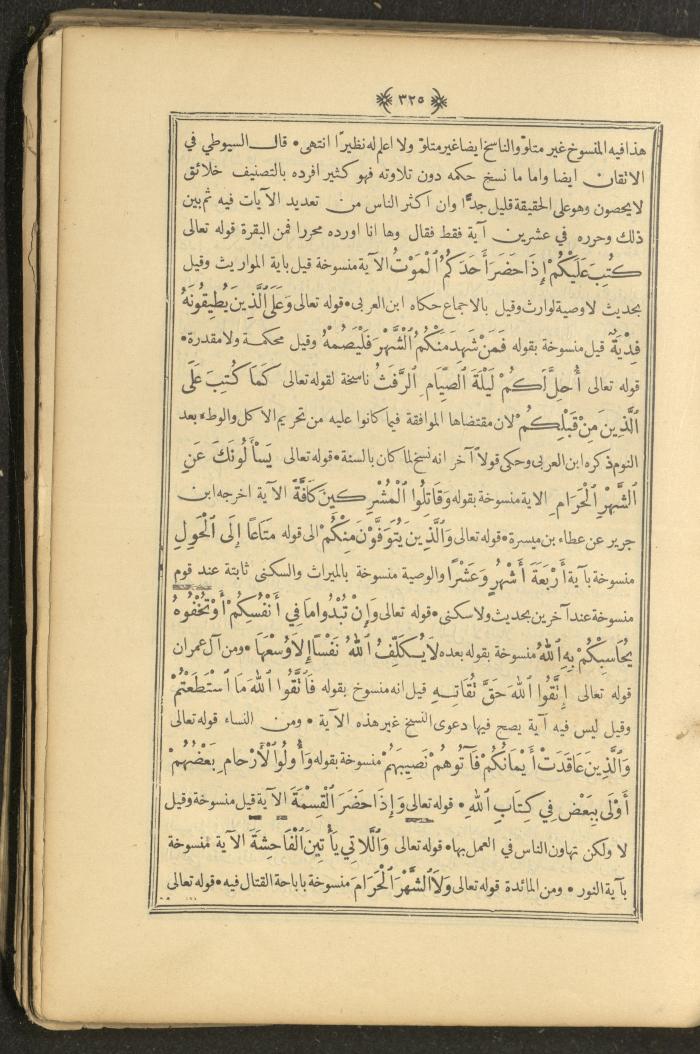 ٣٢٥
هذا فيه المنسوخ غير متلوّ والناسخ ايضا غير متلوّ ولا اعلم له نظيرًا انتهى • قال السيوطي في
الاتقان ايضا واما ما نسخ حكمه دون تلاوته فهو كثير افرده بالتصنيف خلائق
لا يحصون وهو على الحقيقة قليل جدًّا وان اكثر الناس من تعديد الآيات فيه ثم بين
ذلك وحرره في عشرين آية فقط فقال وها انا اورده محررا فمن البقرة قوله تعالى
كُتِبَ عَلَيْكُمْ إِذَا حَضَرَ أَحَدَكُمُ ٱلْمَوْتُ الآية منسوخة قيل باية المواريث وقيل
بحديث لا وصية لوارث وقيل بالاجماع حكاه ابن العربي • قوله تعالى وَعَلَى ٱلَّذِينَ يُطِيقُونَهُ
فِدْيَةٌ قيل منسوخة بقوله فَمَنْ شَهِدَ مِنْكُمُ ٱلشَّهْرَ فَلْيَصُمْهُ وقيل محكمة ولا مقدرة •
قوله تعالى أُحِلَّ لَكُمْ لَيْلَةَ ٱلصِّيَامِ ٱلرَّفَثُ ناسخة لقوله تعالى كَمَا كُتِبَ عَلَى
ٱلَّذِينَ مِنْ قَبْلِكُمْ لان مقتضاها الموافقة فيما كانوا عليه من تحريم الاكل والوطء بعد
النوم ذكره ابن العربي وحكى قولاً آخر انه نسخ لما كان بالسنة • قوله تعالى يَسْأَلُونَكَ عَنِ
ٱلشَّهْرِ ٱلْحَرَامِ الاية منسوخة بقوله وَقَاتِلُوا ٱلْمُشْرِكِينَ كَافَّةً الآية اخرجه ابن
جرير عن عطاء بن ميسرة • قوله تعالى وَٱلَّذِينَ يُتَوَفَّوْنَ مِنْكُمْ الى قوله مَتَاعًا إِلَى ٱلْحَوْلِ
منسوخة بآية أَرْبَعَةَ أَشْهُرٍ وَعَشْرًا والوصية منسوخة بالميراث والسكنى ثابتة عند قوم
منسوخة عند آخرين بحديث ولا سكنى • قوله تعالى وَإِنْ تُبْدُوا مَا فِي أَنْفُسِكُمْ أَوْ تُخْفُوهُ
يُحَاسِبْكُمْ بِهِ ٱللهُ منسوخة بقوله بعده لَا يُكَلِّفُ ٱللهُ نَفْسًا إِلَّا وُسْعَهَا • ومن آل عمران
قوله تعالى إِتَّقُوا ٱللهَ حَقَّ تُقَاتِهِ قيل انه منسوخ بقوله فَٱتَّقُوا ٱللهَ مَا ٱسْتَطَعْتُمْ
وقيل ليس فيه آية يصح فيها دعوى النسخ غير هذه الآية • ومن النساء قوله تعالى
وَٱلَّذِينَ عَاقَدَتْ أَيْمَانُكُمْ فَآتُوهُمْ نَصِيبَهُمْ منسوخة بقوله وَأُولُوا ٱلْأَرْحَامِ بَعْضُهُمْ
أَوْلَى بِبَعْضٍ فِي كِتَابِ ٱللهِ • قوله تعالى وَإِذَا حَضَرَ ٱلْقِسْمَةَ الآية قيل منسوخة وقيل
لا ولكن تهاون الناس في العمل بها • قوله تعالى وَٱللَّاتِي يَأْتِينَ ٱلْفَاحِشَةَ الآية منسوخة
بآية النور • ومن المائدة قوله تعالى وَلَا ٱلشَّهْرَ ٱلْحَرَامَ منسوخة باباحة القتال فيه • قوله تعالى